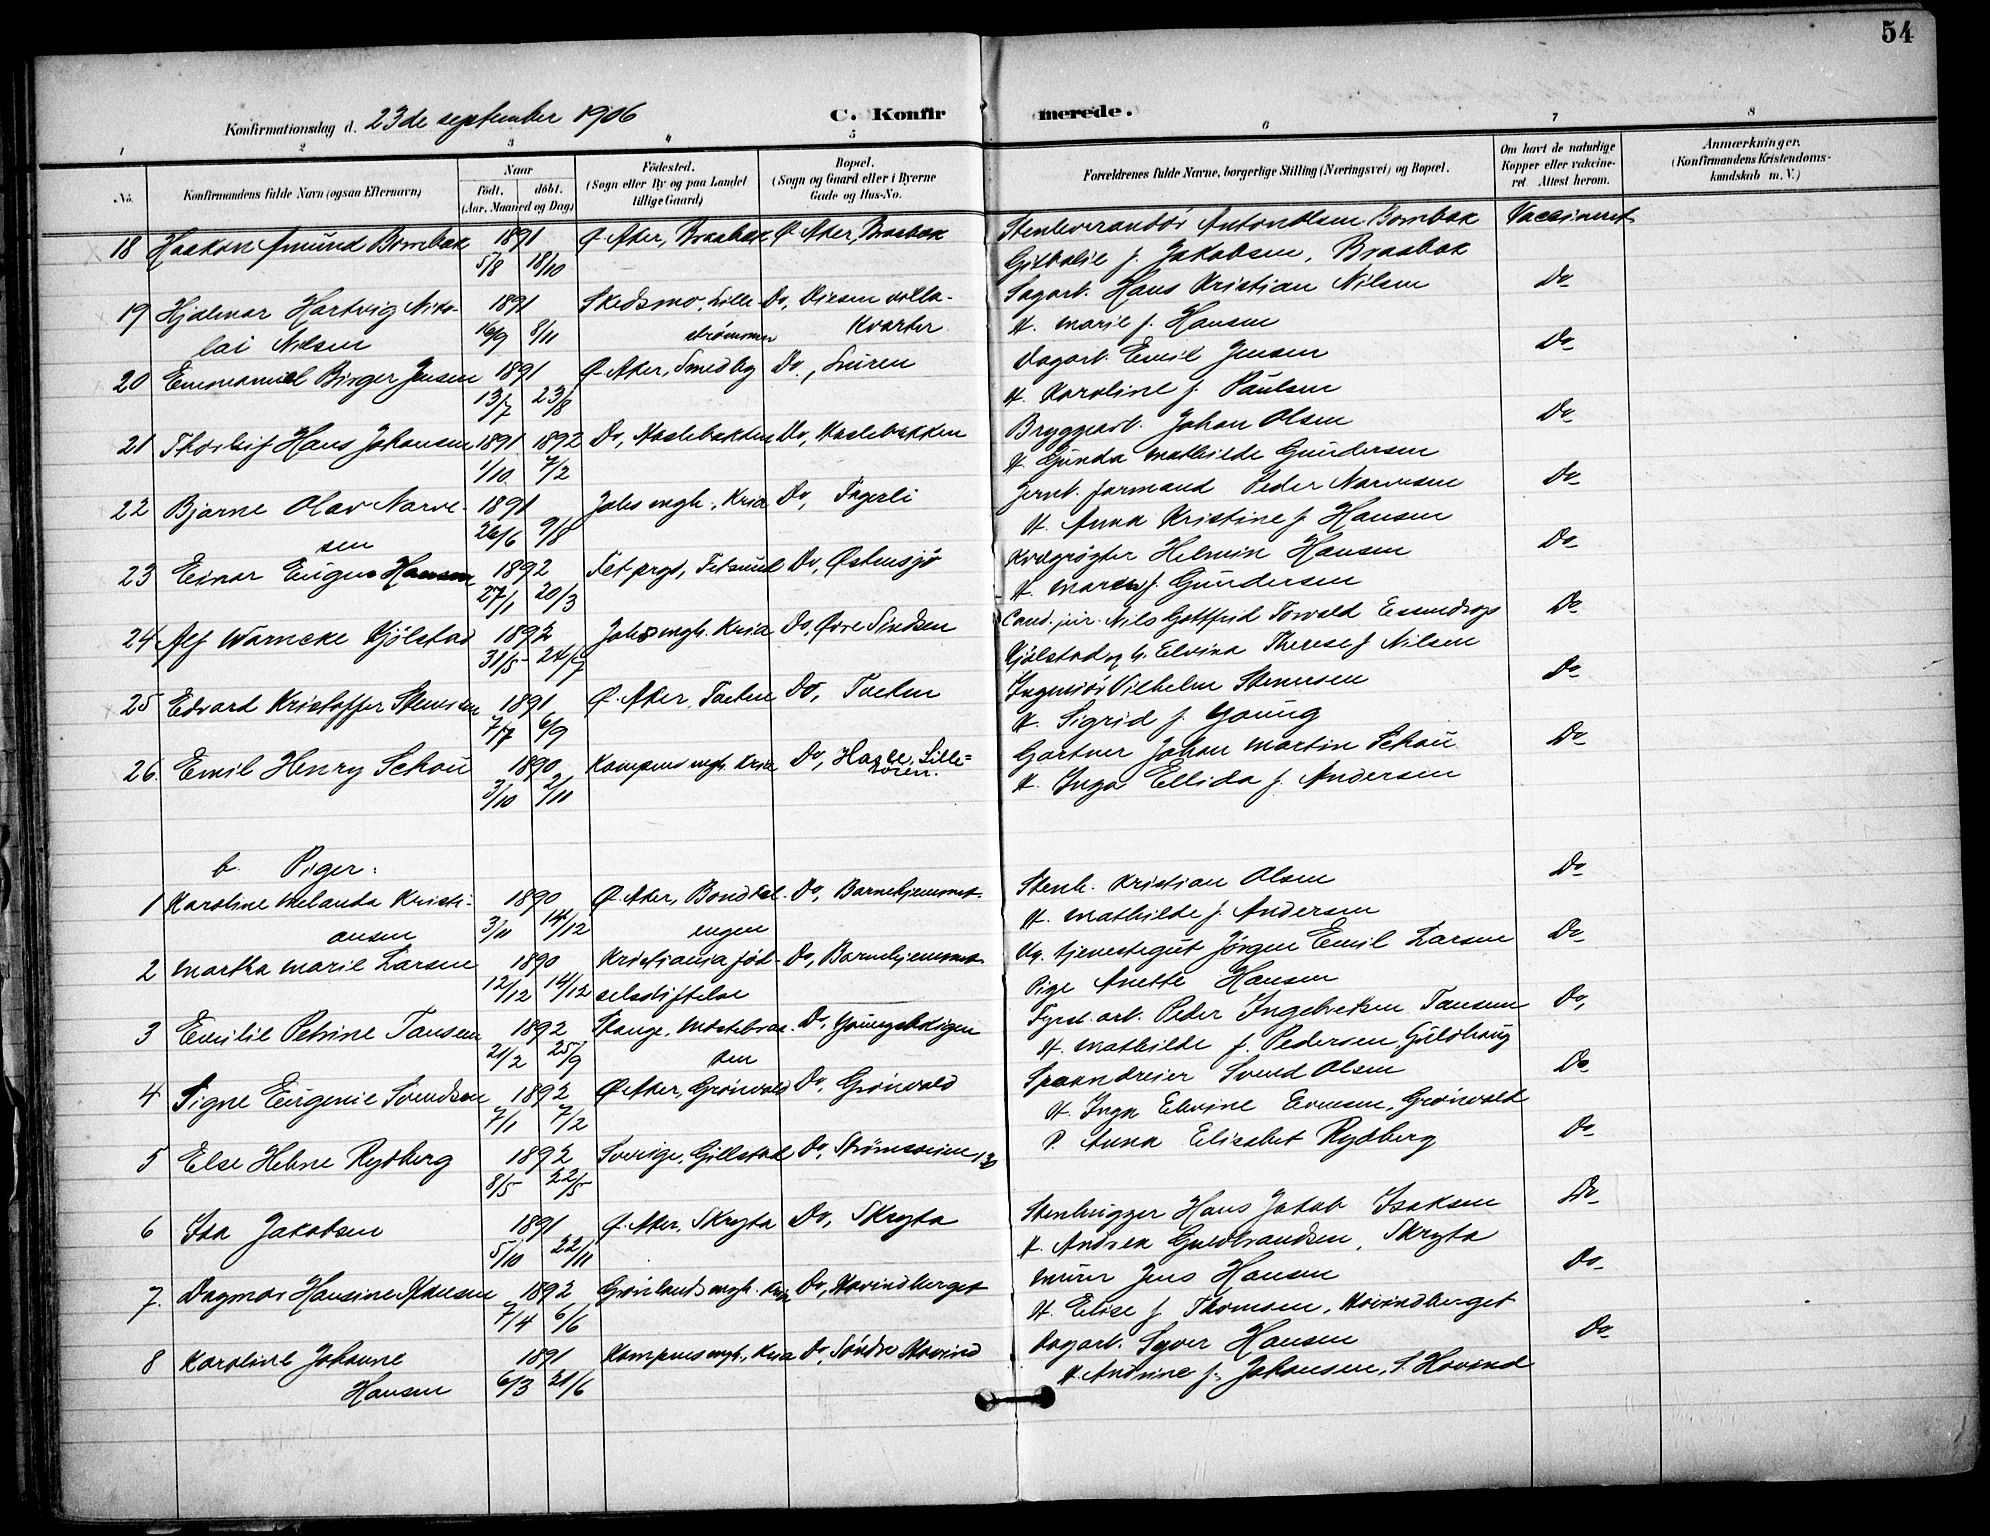 54
Konfirmationsdag d. 23de september 1906 C. Konfirmerede.
1 2 3 4 5 6 7 8
No. Konfirmandens fulde Navn (ogsaa Efternavn) Naar født. døbt. (Aar, Maaned og Dag) Födested. (Sogn eller By og paa Landet tillige Gaard) Bopæl. (Sogn og Gaard eller i Byerne Gade og Hus-No. Forældrenes fulde Navne, borgerlige Stilling (Næringsvei) og Bopæl. Om havt de naturlige Kopper eller vakcineret Attest herom. Anmærkninger. (Konfirmandens Kristendomskundskab m. V.)
18 Haakon Amund Bornbak 1891 Ø. Aker, Braabæk Ø Aker, Braabæk Stenleverandör Anton Olsen Bornbak Vaccineret
5/8 18/10 f. Jakobsen, Braabæk
19 Hjalmar Hartvig Niko- 1891 Skedsmo, Lille- Do, kvarter Sagarb. Hans Kristian Nilsen Do
lai Nilsen 16/9 8/11 strømmen H. Marie f. Hansen
20 Emmanuel Birger Jensen 1891 Ø. Aker, Smedby Do, Luren Dagarb. Emil Jensen Do
13/7 23/8 H. Karoline f. Paulsen
21 Thorleif Hans Johansen 1891 1892 Do, Haslebakken Do, Haslebakken Bryggearb. Johan Olsen Do
1/10 7/2 H. Gunda Mathilde Gundersen
22 Bjarne Olav Narve- 1891 Johs mgh., Kria Do, Fagerli Jernb. formand Peder Narvesen Do
sen 26/6 9/8 H. Anna Kristine f. Hansen
23 Einar Eugen Hansen 1892 Fet prgd, Fetsund Do, Østensjø Kvægrøgter Helmin Hansen Do
27/1 20/3 H. Maren f. Gundersen
24 Alf Warncke Kjölstad 1892 Johs mgh. Kria Do, Øvre Sindsen Cand. jur. Nils Gottfrid Torvald Essendrops Do
31/5 24/7 Kjölstad og h. Elvina Therese f Nilsen
25 Edvard Kristoffer Stenersen 1891 Ø. Aker, Toeten Do, Toeten Ingeniør Vilhelm Stenersen Do
7/7 6/9 H. Sigrid f. Young
26. Emil Henry Schou 1890 Kampens mgh. Kria Do, Hasle, Lille- Gartner Johan Martin Schou Do
3/10 2/11 töien. H. Inga Ellida f. Andersen
b. Piger:
1 Karoline Melanda Kristi- 1890 Ø. Aker, Bondkal- Do, Barnehjemmet Stenh. Kristian Olsen Do
ansen 3/10 14/12 engen H. Mathilde f. Andersen
2 Martha Marie Larsen 1890 Kristiania fød- Do, Barnehjemmet Ug. tjenestegut Jörgen Emil Larsen Do
12/12 14/12 selsstiftelse Pige Anette Hansen
3 Emilie Petrine Tansem 1892 Stange, Do, Youngsløkigen Fyrst. arb. Peder Ingebretsen Tansem Do,
21/2 25/9 H. Mathilde f. Pedersen, Guldhaug
4 Signe Eugenie Svendsen 1892 Ø. Aker, Grönvold Do, Grönvold Spaandreier Svend Olsen Do
7/1 7/2 H. Inga Elevine Evensen, Grönvold
5 Else Helene Rydberg 1892 Sverige, Gillstad Do, Strømsveien P. Anna Elisabet Rydberg Do
8/5 22/5
6 Isa Jakobsen 1891 Ø. Aker, Skryta Do, Skryta Stenhugger Hans Jakob Isaksen Do
5/10 22/11 H. Andrea Guldbrandsen, Skryta
7. Dagmar Hansine Hansen 1892 Grønlands mgh. Kria Do, Hovindberget Murer Jens Hansen Do
7/4 6/6 H. Elise f Thomsen, Hovindberget
8 Karoline Johanne 1891 Kampens mgh., Kria Do, Söndre Hovind Dagarb. Syver Hansen Do
Hansen 6/3 21/6 H. Andrine f. Johansen, S. Hovind